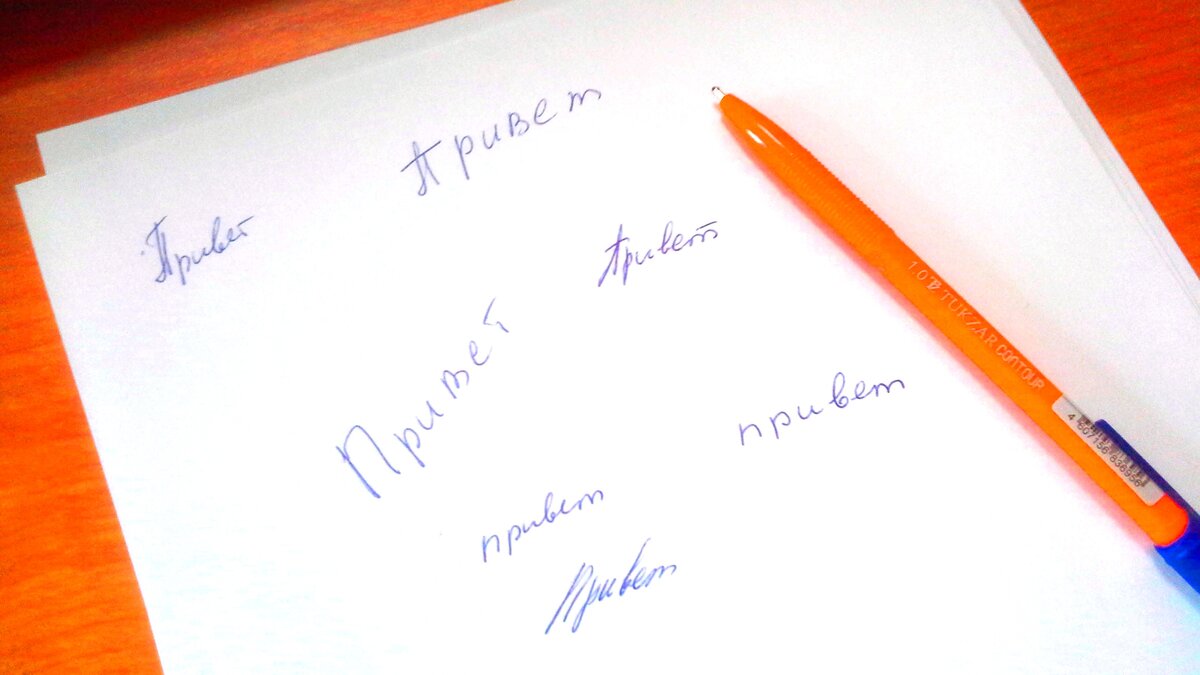 Привет
Привет
Привет
Привет
привет
привет
Привет
1.0 TUKZAR CONTOUR
4 607156 836956